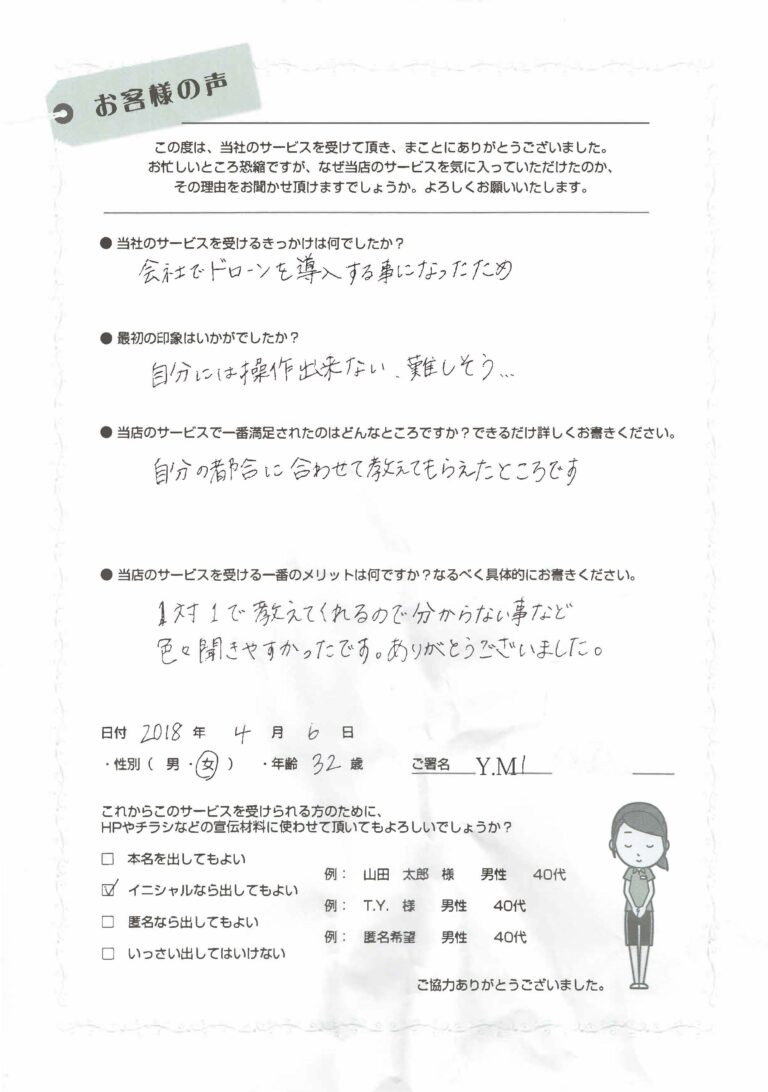 お客様の声
この度は、当社のサービスを受けて頂き、まことにありがとうございました。
お忙しいところ恐縮ですが、なぜ当店のサービスを気に入っていただけたのか、
その理由をお聞かせ頂けますでしょうか。よろしくお願いいたします。
● 当社のサービスを受けるきっかけは何でしたか？
会社でドローンを導入する事になったため
● 最初の印象はいかがでしたか？
自分には操作出来ない、難しそう...
● 当店のサービスで一番満足されたのはどんなところですか？できるだけ詳しくお書きください。
自分の都合に合わせて教えてもらえたところです
● 当店のサービスを受ける一番のメリットは何ですか？なるべく具体的にお書きください。
1対1で教えてくれるので分からない事など
色々聞きやすかったです。ありがとうございました。
日付 2018 年 4 月 6 日
・性別（ 男 ・ 女 ） ・年齢 32 歳 ご署名 Y.M
これからこのサービスを受けられる方のために、
HPやチラシなどの宣伝材料に使わせて頂いてもよろしいでしょうか？
□ 本名を出してもよい
例： 山田 太郎 様 男性 40代
☑ イニシャルなら出してもよい
例： T.Y. 様 男性 40代
□ 匿名なら出してもよい
例： 匿名希望 男性 40代
□ いっさい出してはいけない
ご協力ありがとうございました。